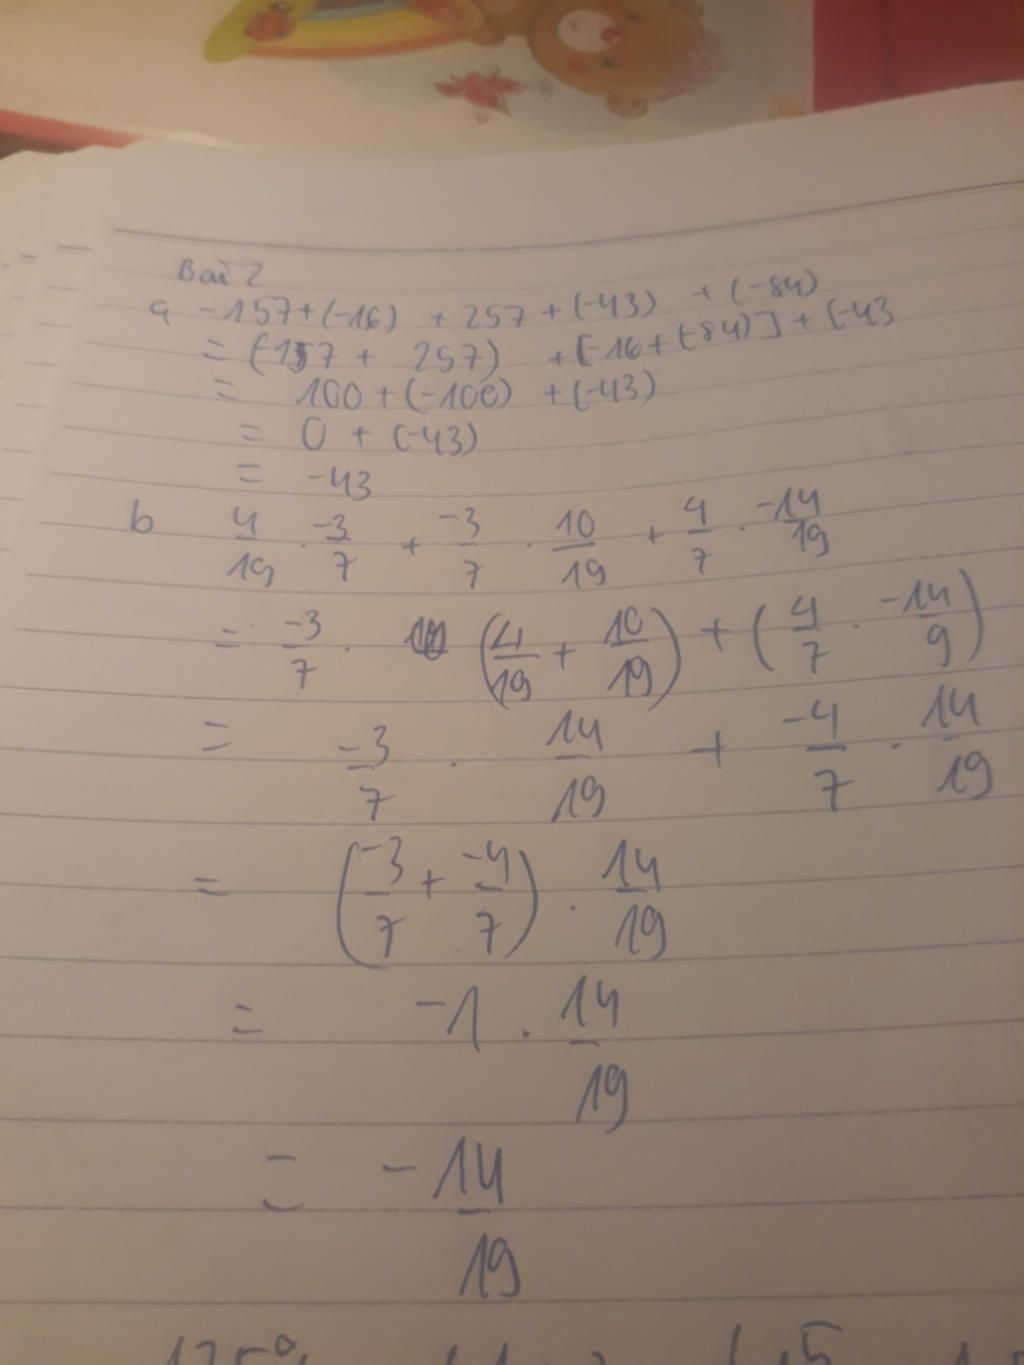 Bài 2
a -157+(-16) + 257 + (-43) + (-84)
= (157 + 257) + [-16+(-84)] + (-43
= 100 + (-100) + (-43)
= 0 + (-43)
= -43
b 4/19 . -3/7 + -3/7 . 10/19 + 4/7 . -14/19
= -3/7 . (4/19 + 10/19) + (4/7 . -14/9)
= -3/7 . 14/19 + -4/7 . 14/19
= (-3/7 + -4/7) . 14/19
= -1 . 14/19
= -14/19